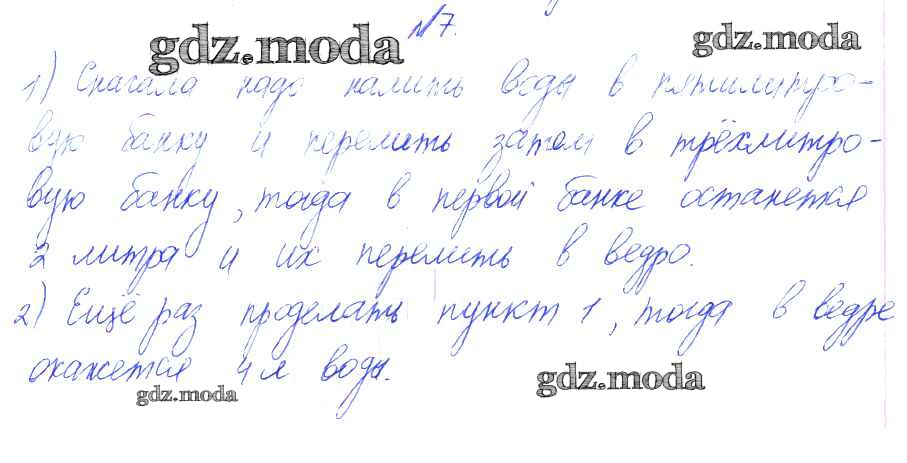 №7.
gdz.moda
gdz.moda
1) Сначала надо налить воды в пятилитро-
вую банку и перелить затем в трёхлитро-
вую банку, тогда в первой банке останется
2 литра и их перелить в ведро.
2) Ещё раз проделать пункт 1, тогда в ведре
окажется 4 л воды.
gdz.moda
gdz.moda